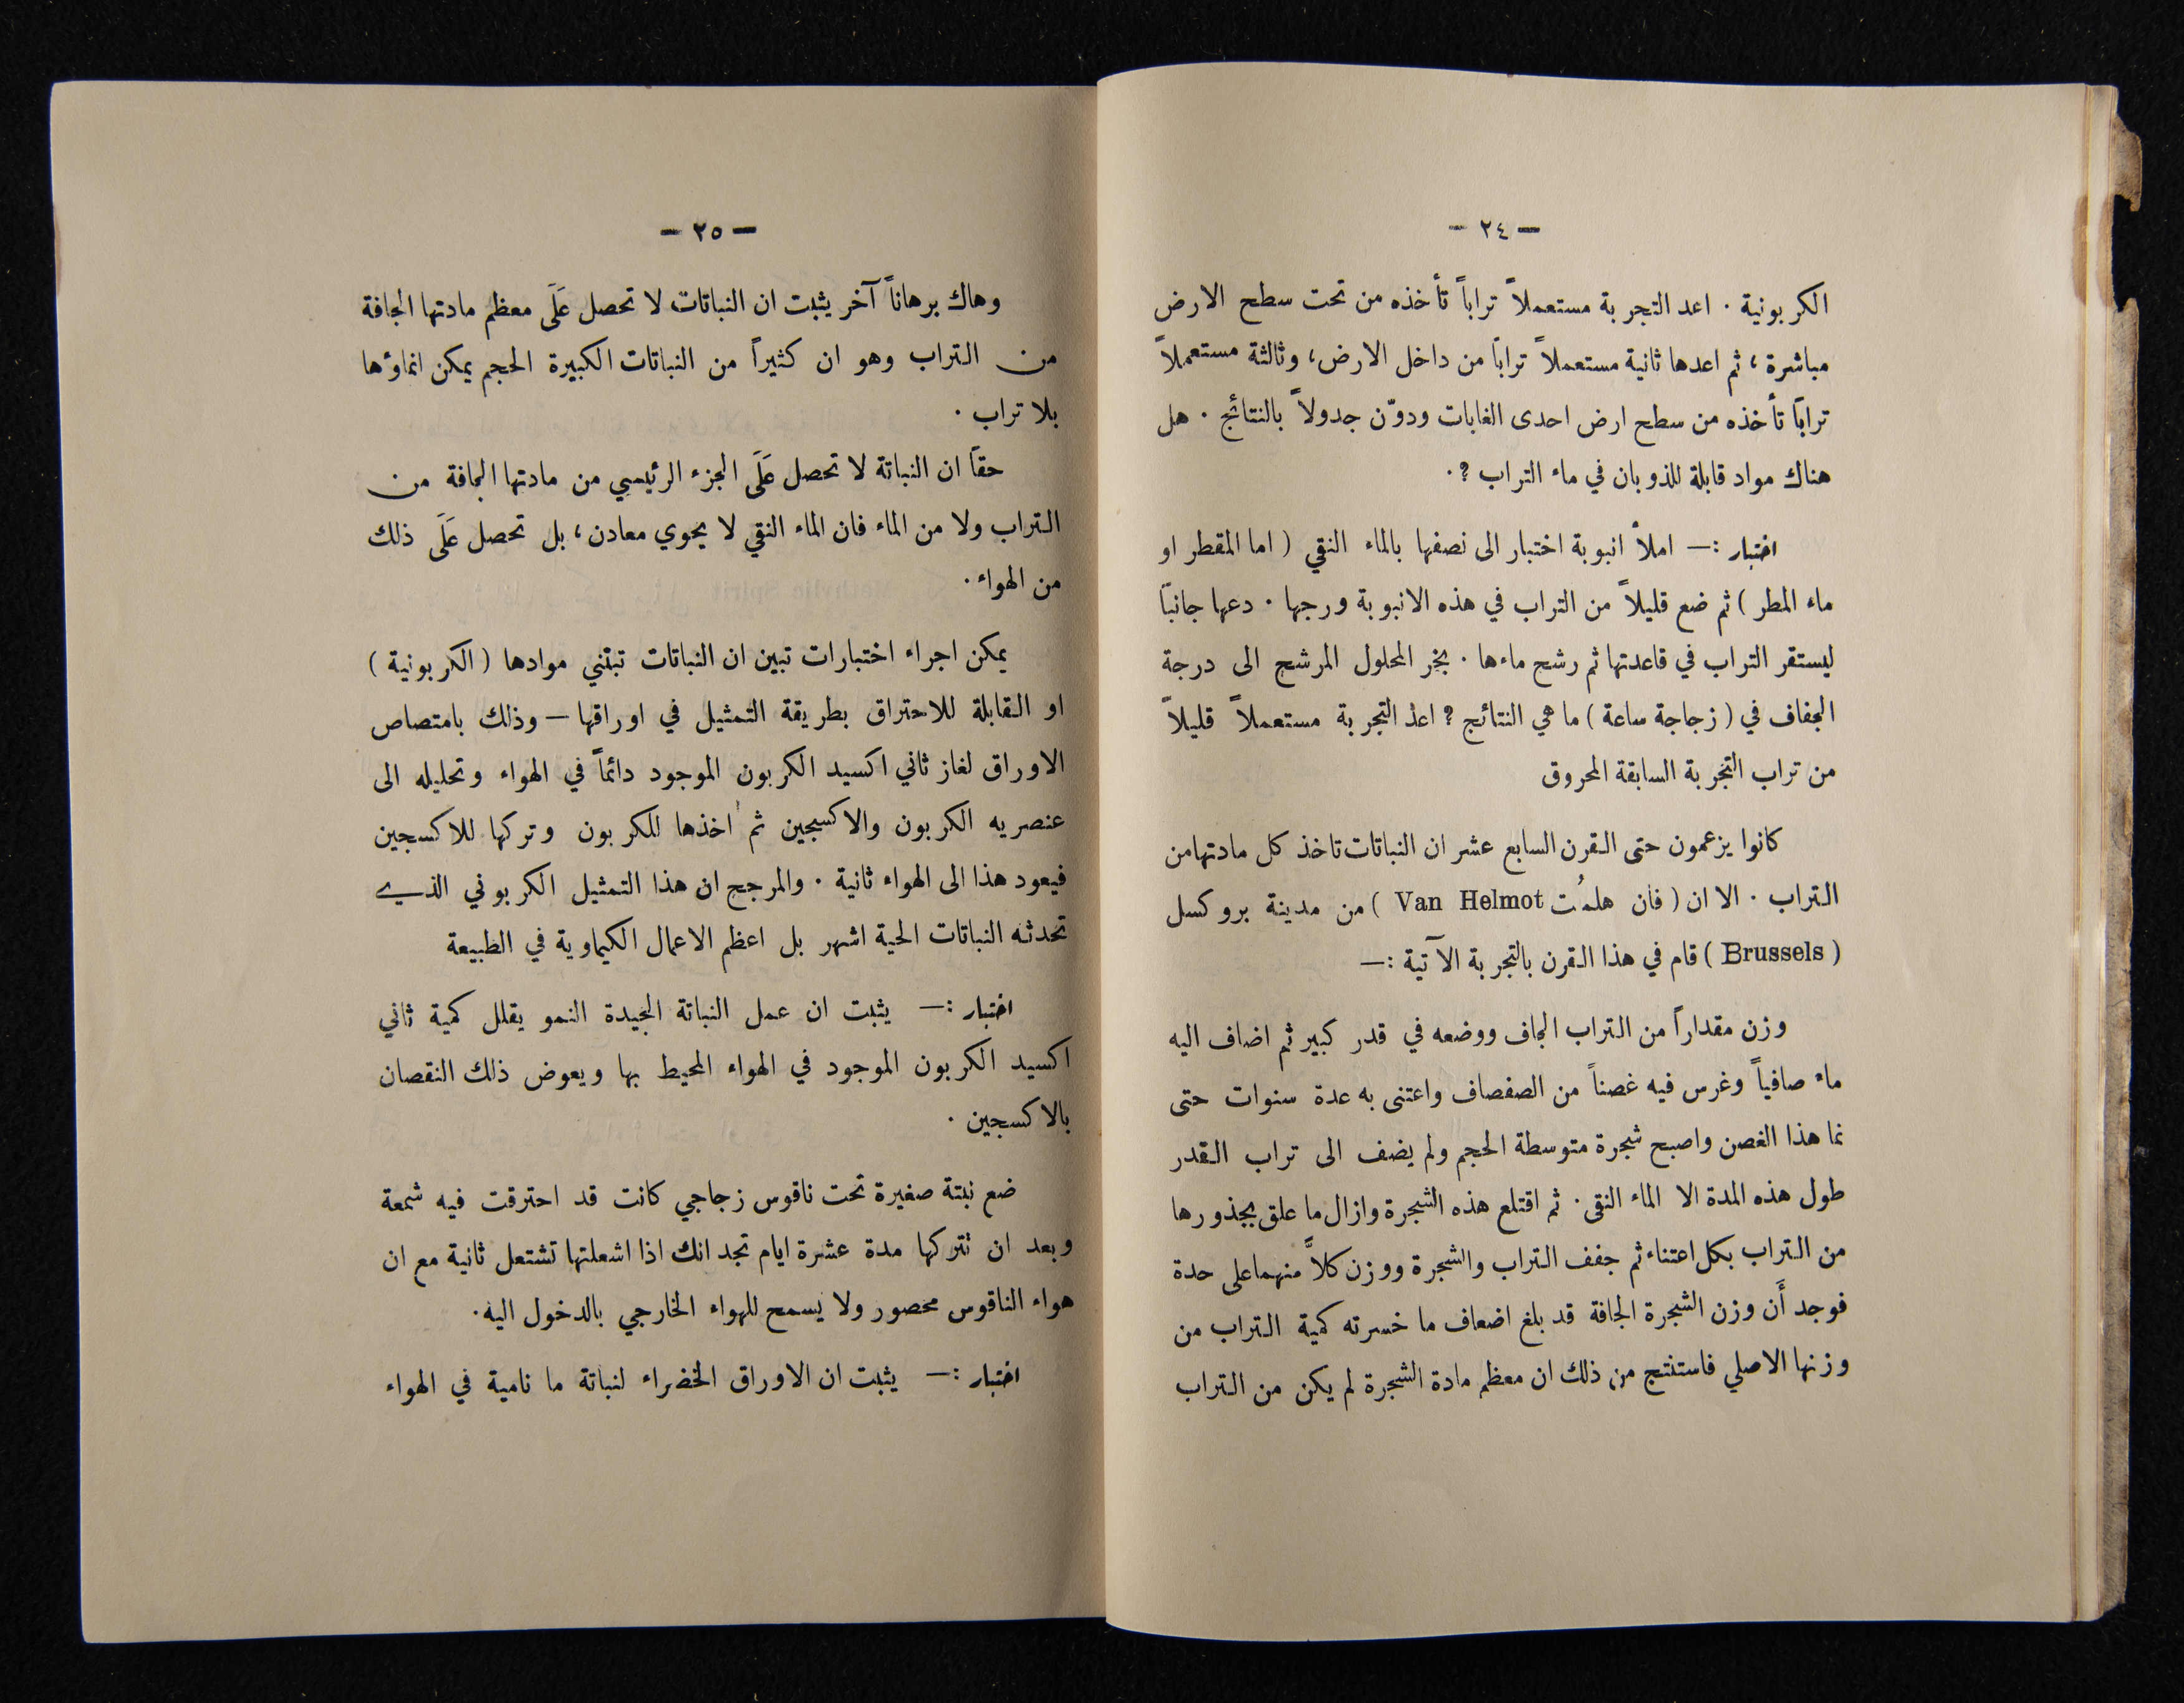 — ٢٤ —
الكربونية . اعد التجربة مستعملاً تراباً تأخذه من تحت سطح الارض
مباشرة ، ثم اعدها ثانية مستعملاً تراباً من داخل الارض ، وثالثة مستعملاً
تراباً تأخذه من سطح ارض احدى الغابات ودوّن جدولاً بالنتائج . هل
هناك مواد قابلة للذوبان في ماء التراب ؟ .
اختبار :— املأ انبوبة اختبار الى نصفها بالماء النقي ( اما المقطر او
ماء المطر ) ثم ضع قليلاً من التراب في هذه الانبوبة ورجها . دعها جانباً
ليستقر التراب في قاعدتها ثم رشح ماءها . بخر المحلول المرشح الى درجة
الجفاف في ( زجاجة ساعة ) ما هي النتائج ؟ اعد التجربة مستعملاً قليلاً
من تراب التجربة السابقة المحروق
كانوا يزعمون حتى القرن السابع عشر ان النباتات تاخذ كل مادتها من
التراب . الا ان ( فان هلمُت Van Helmot ) من مدينة بروكسل
( Brussels ) قام في هذا القرن بالتجربة الآتية :—
وزن مقداراً من التراب الجاف ووضعه في قدر كبير ثم اضاف اليه
ماء صافياً وغرس فيه غصناً من الصفصاف واعتنى به عدة سنوات حتى
نما هذا الغصن واصبح شجرة متوسطة الحجم ولم يضف الى تراب القدر
طول هذه المدة الا الماء النقى . ثم اقتلع هذه الشجرة وازال ما علق بجذورها
من التراب بكل اعتناء ثم جفف التراب والشجرة ووزن كلاً منهما على حدة
فوجد أَن وزن الشجرة الجافة قد بلغ اضعاف ما خسرته كمية التراب من
وزنها الاصلي فاستنتج من ذلك ان معظم مادة الشجرة لم يكن من التراب
— ٢٥ —
وهاك برهاناً آخر يثبت ان النباتات لا تحصل عَلَى معظم مادتها الجافة
من التراب وهو ان كثيراً من النباتات الكبيرة الحجم يمكن انماؤها
بلا تراب .
حقاً ان النباتة لا تحصل عَلَى الجزء الرئيسي من مادتها الجافة من
التراب ولا من الماء فان الماء النقي لا يحوي معادن ، بل تحصل عَلَى ذلك
من الهواء .
يمكن اجراء اختبارات تبين ان النباتات تبتني موادها ( الكربونية )
او القابلة للاحتراق بطريقة التمثيل في اوراقها — وذلك بامتصاص
الاوراق لغاز ثاني اكسيد الكربون الموجود دائماً في الهواء وتحليله الى
عنصريه الكربون والاكسجين ثم اخذها للكربون وتركها للاكسجين
فيعود هذا الى الهواء ثانية . والمرجح ان هذا التمثيل الكربوني الذي
تحدثه النباتات الحية اشهر بل اعظم الاعمال الكيماوية في الطبيعة
اختبار :— يثبت ان عمل النباتة الجيدة النمو يقلل كمية ثاني
اكسيد الكربون الموجود في الهواء المحيط بها ويعوض ذلك النقصان
بالاكسجين .
ضع نبتة صغيرة تحت ناقوس زجاجي كانت قد احترقت فيه شمعة
وبعد ان تتركها مدة عشرة ايام تجد انك اذا اشعلتها تشتعل ثانية مع ان
هواء الناقوس محصور ولا يسمح للهواء الخارجي بالدخول اليه .
اختبار :— يثبت ان الاوراق الخضراء لنباتة ما نامية في الهواء